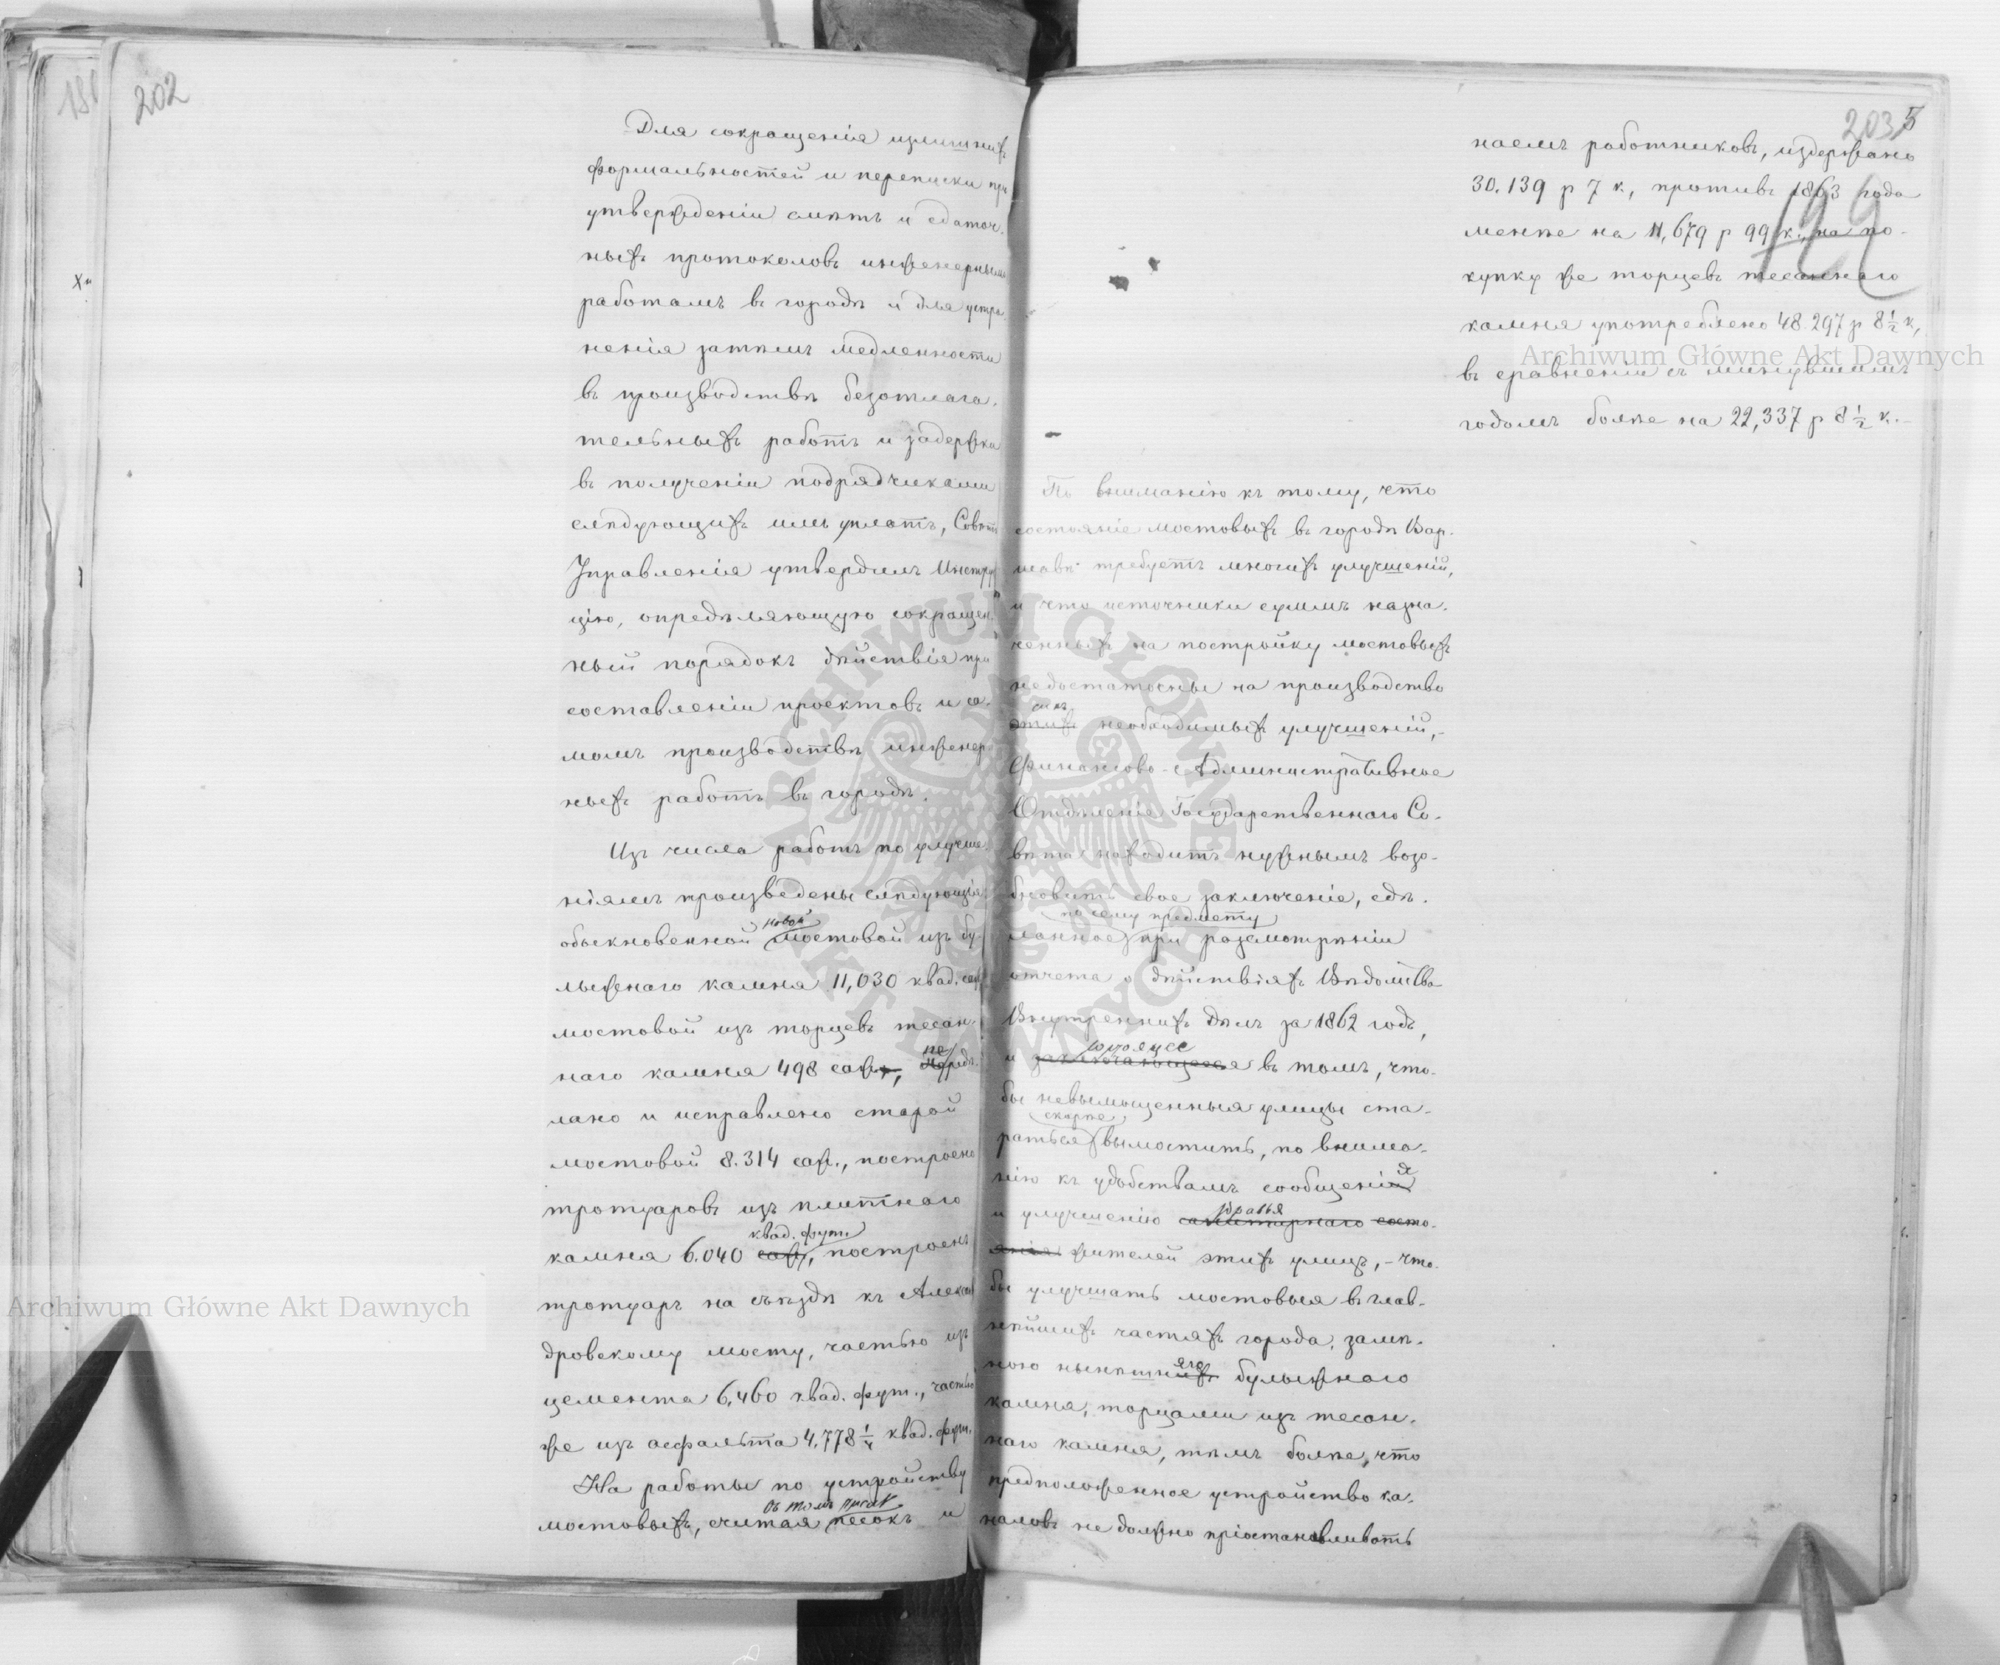 181
202
Для сокращенія излишнихъ
формальностей и переписки при
утвержденіи смѣтъ и сдаточ-
ныхъ протоколовъ инженернымъ
работамъ въ городѣ и для устра-
ненія затѣмъ медленности
въ производствѣ безотлага-
тельныхъ работъ и задержка
въ полученіи подрядчиками
слѣдующихъ имъ уплатъ, Совѣтъ
Управленія утвердилъ Инструк
цію, опредѣляющую сокращен-
ный порядокъ дѣйствія при
составленіи проектовъ и са-
момъ производствѣ инженер
ныхъ работъ въ городѣ.
Изъ числа работъ по улучше
ніямъ произведены слѣдующія
новой
обыкновенной мостовой изъ бу-
лыжнаго камня 11,030 квад. саж
мостовой изъ торцевъ тесан-
пе
наго камня 498 саж., передѣ-
лано и исправлено старой
мостовой 8.314 саж., построено
тротуаровъ изъ плитнаго
квад. фут.
камня 6.040 саж., построенъ
тротуаръ на съѣздѣ къ Алексан
дровскому мосту, частью изъ
цемента 6,460 квад. фут., частью
же изъ асфальта 4.778 1/4 квад. фут.
На работы по устройству
въ томъ числѣ
мостовыхъ, считая песокъ и
203
5
122
наемъ работниковъ, издержано
30.139 р 7 к., противъ 1863 года
менѣе на 11,679 р 99 к., на по-
купку же торцевъ тесаннаго
камня употреблено 48.297 р 8 1/2 к,
въ сравненіи съ минувшимъ
годомъ болѣе на 22,337 р 8 1/2 к.
По вниманію къ тому, что
состояніе мостовыхъ въ городѣ Вар-
шавѣ требуетъ многихъ улучшеній,
и что источники суммъ назна-
ченныхъ на постройку мостовыхъ
недостаточны на производство
сихъ
этихъ необходимыхъ улучшеній,-
Финансово-Административное
Отдѣленіе Государственнаго Со-
вѣта находитъ нужнымъ возо-
бновить свое заключеніе, сдѣ-
по сему предмету
ланное при разсмотрѣніи
отчета о дѣйствіяхъ Вѣдомства
Внутреннихъ Дѣлъ за 1862 годъ,
состоящее
и заключающееся въ томъ, что-
бы невымощенныя улицы ста-
скорѣе
раться вымостить, по внима-
нію къ удобствамъ сообщенія
здоровья
и улучшенію санитарнаго состо-
янія жителей этихъ улицъ,- что-
бы улучшать мостовыя въ глав-
нѣйшихъ частяхъ города, замѣ-
яго
ною нынѣшнихъ булыжнаго
камня, торцами изъ тесан-
наго камня, тѣмъ болѣе, что
предположенное устройство ка-
наловъ не должно пріостанавливать
Archiwum Główne Akt Dawnych
Archiwum Główne Akt Dawnych
ARCHIWUM GŁÓWNE AKT DAWNYCH